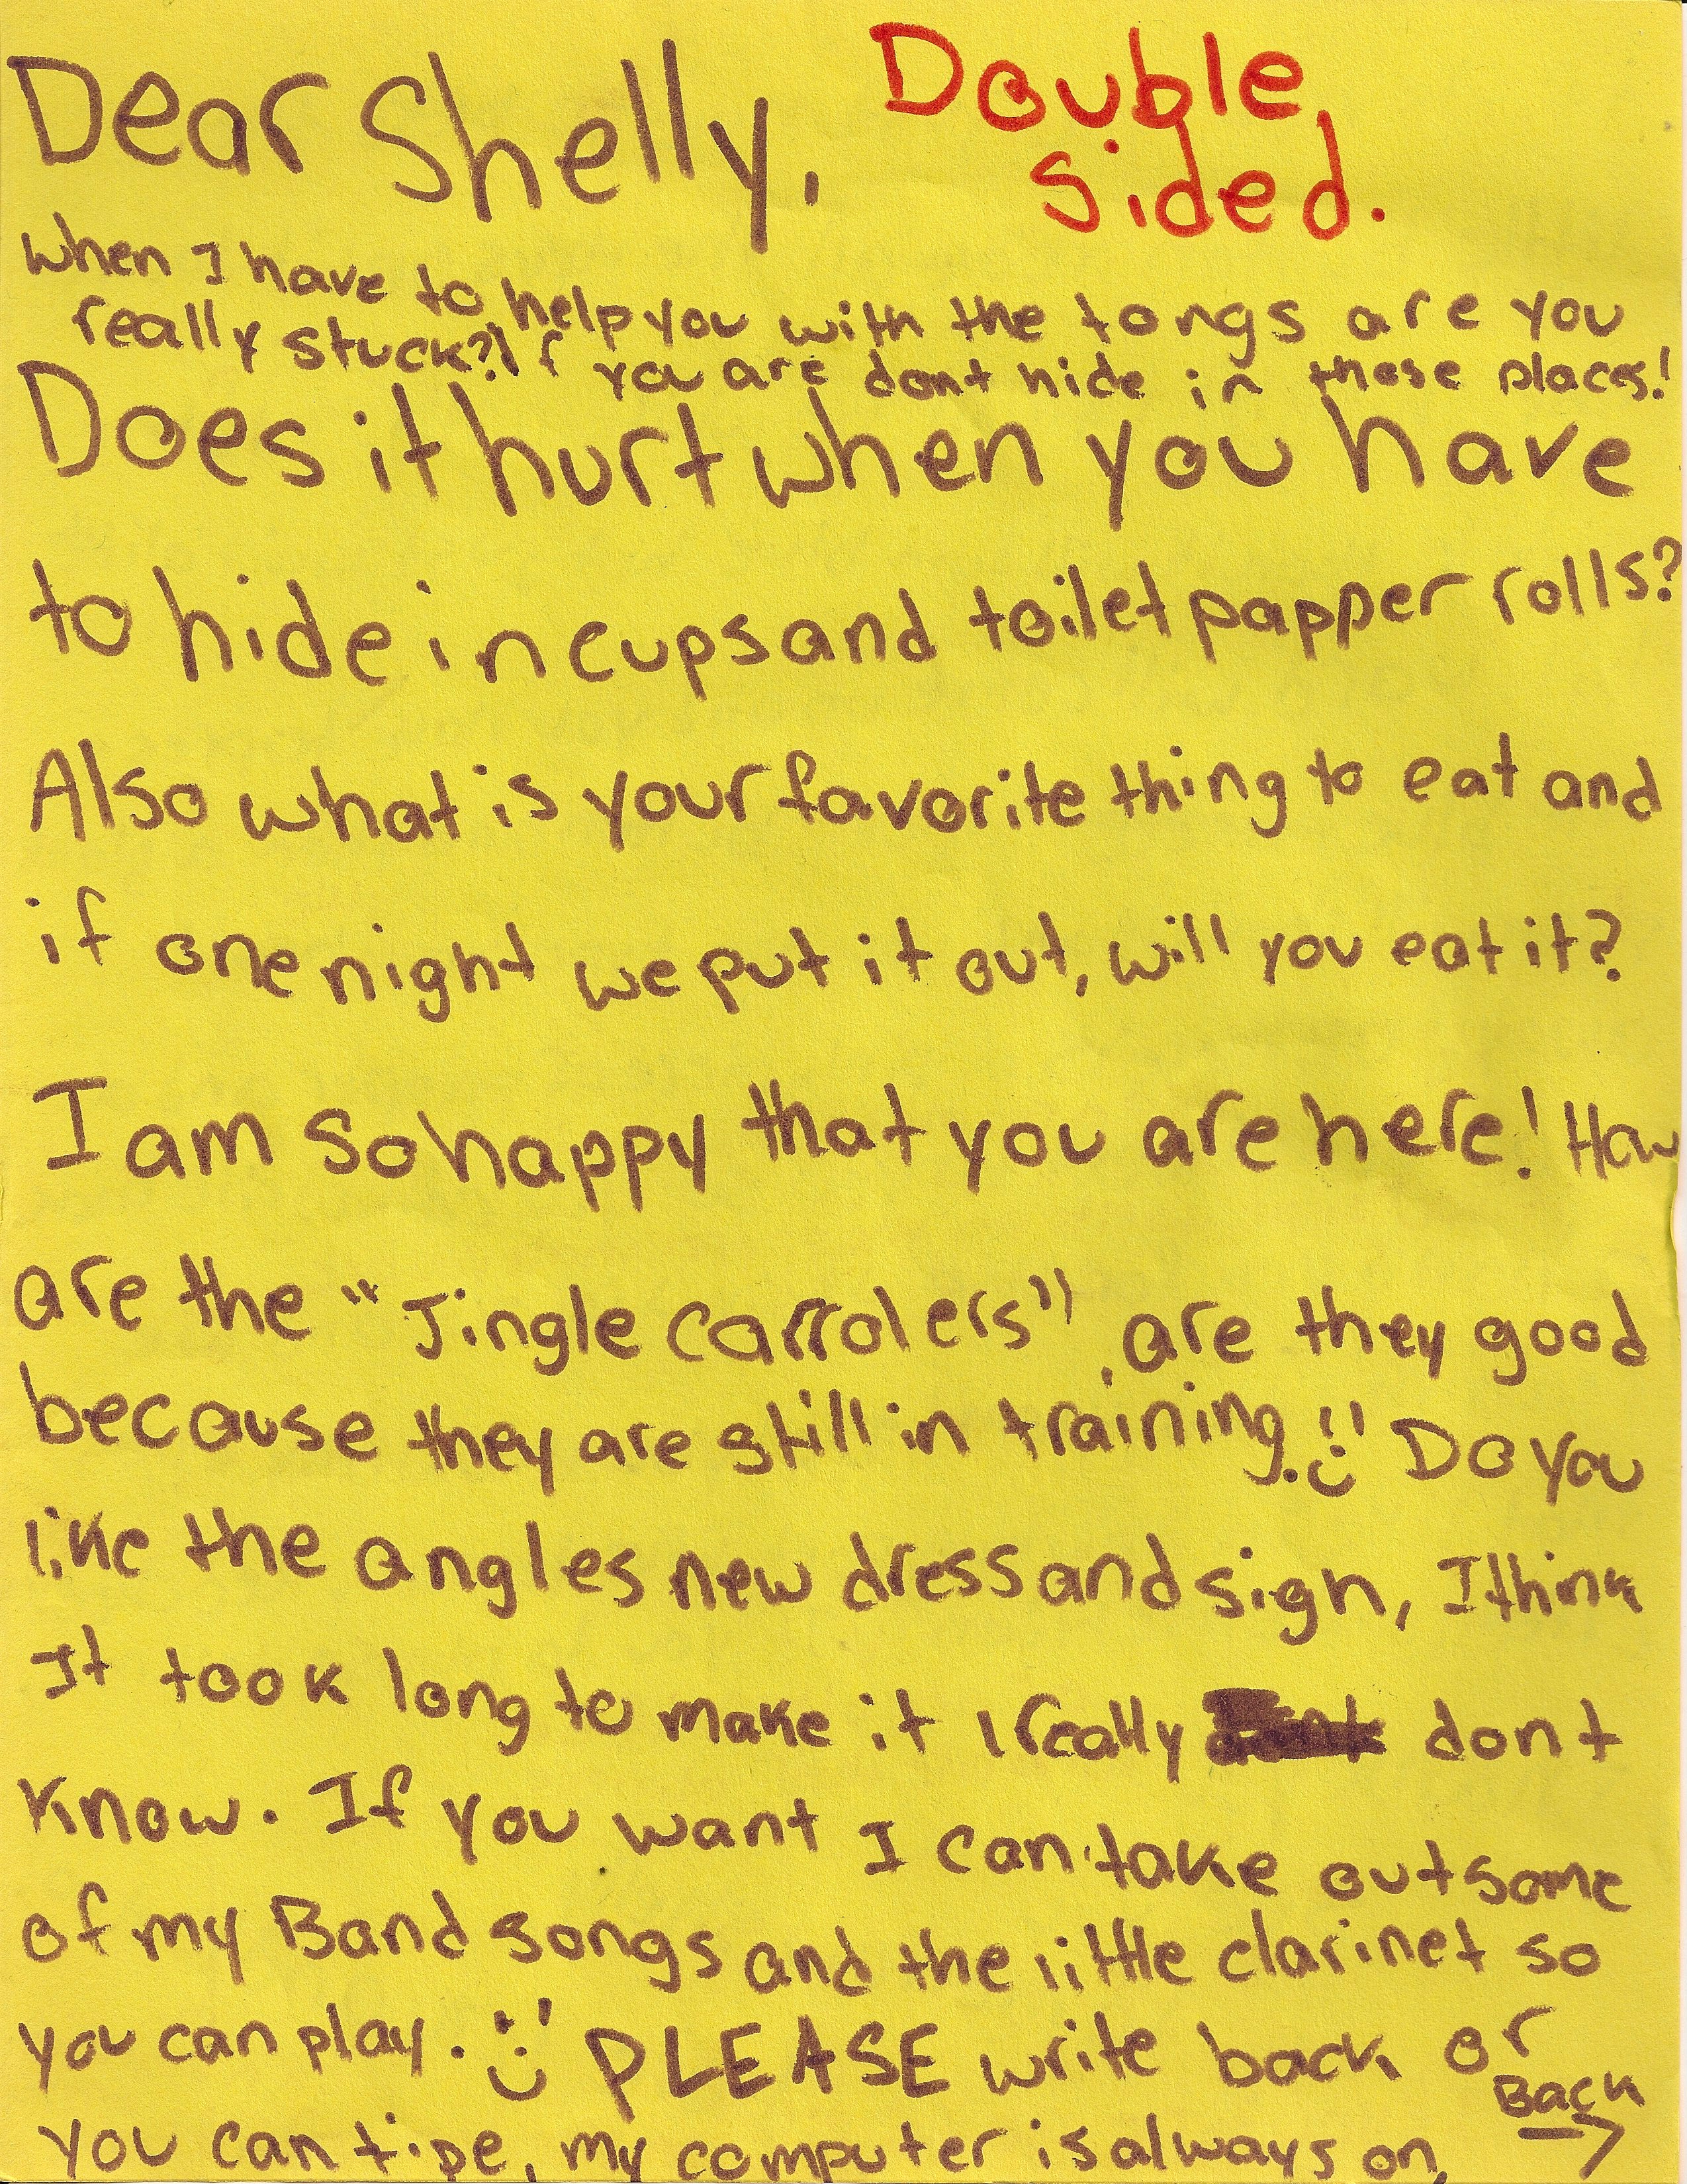 Dear Shelly,
Double
sided.
When I have to help you with the tongs are you
really stuck?! If you are dont hide in these places!
Does it hurt when you have
to hide in cups and toilet papper rolls?
Also what is your favorite thing to eat and
if one night we put it out, will you eat it?
I am so happy that you are here! How
are the "Jingle carrolers", are they good
because they are still in training. Do you
like the angles new dress and sign, I think
It took long to make it I really dont
know. If you want I can take out some
of my Band songs and the little clarinet so
you can play. PLEASE write back or
you can tipe, my computer is always on,
Back